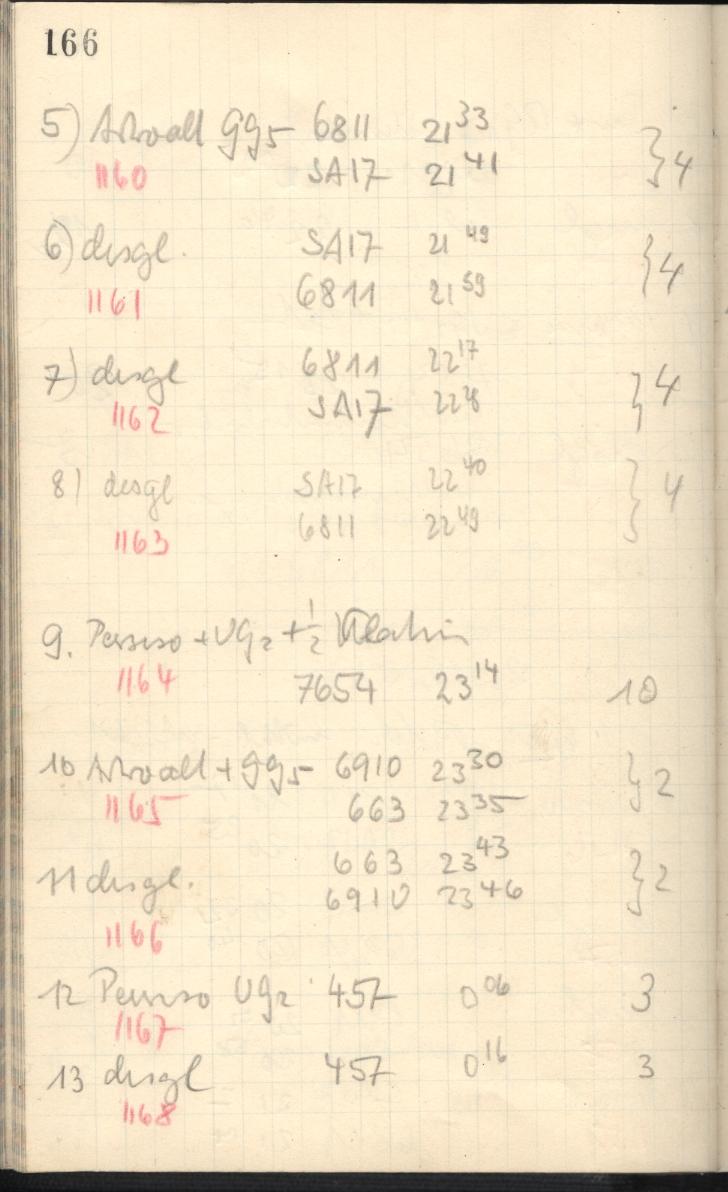 166
5) Astroall GG5 6811 21 33
1160 SA17 21 41 } 4
6) desgl. SA17 21 49
1161 6811 21 59 } 4
7) desgl 6811 22 17
1162 SA17 22 28 } 4
8) desgl SA17 22 40
1163 6811 22 49 } 4
9. Perseo + UG2 + 1/2
1164 7654 23 14 10
10 Astroall + GG5 6910 23 30
1165 663 23 35 } 2
11 desgl. 663 23 43
6910 23 46 } 2
1166
12 Perseo UG2 457 0 06 3
1167
13 desgl 457 0 16 3
1168